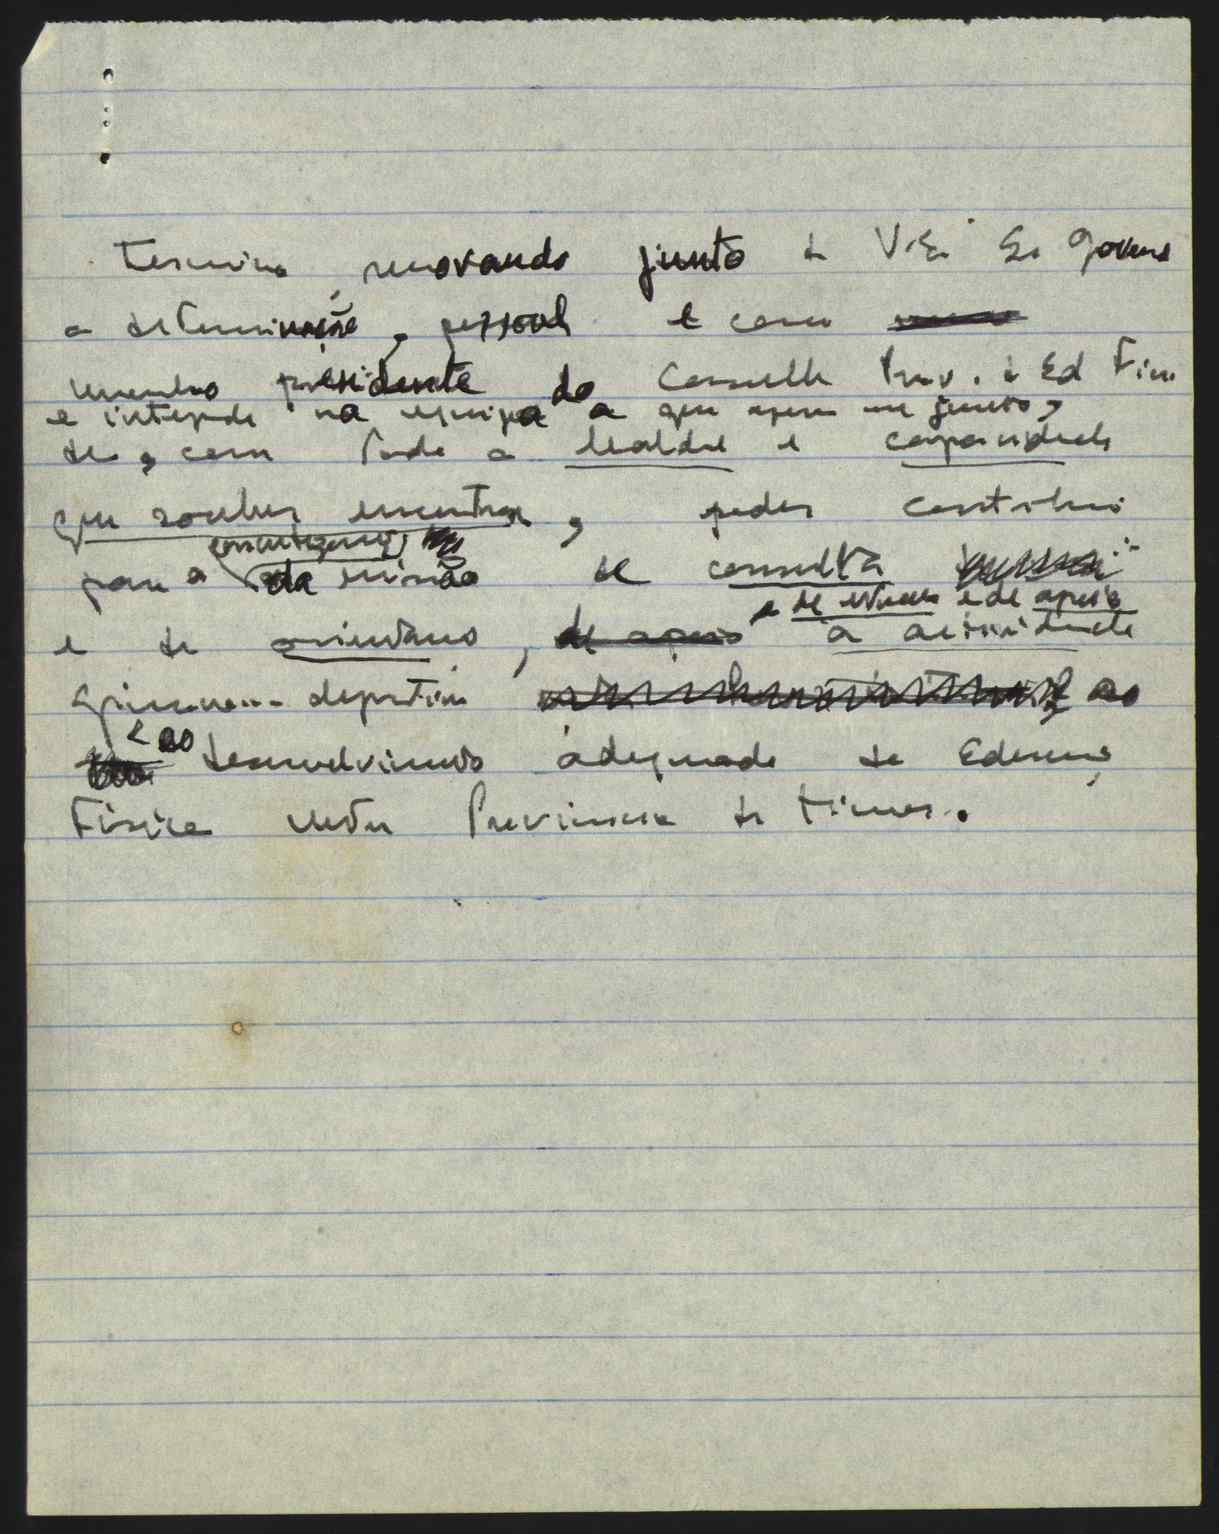 Termino renovando junto de V. Ex. Sr. Governa
a determinação, pessoal e como
membro presidente do Conselho Prov. de Ed Físic
e integrado na equipa a que agora me junto,
de, com toda a lealdade e capacidade
que souber encontrar, poder contribuir
para a concretização da missão de consulta
e de estudo e de apoio
e de orientação, de apoio à actividade
gimno-desportiva ao
e ao desenvolvimento adequado da Educação
Física nesta Província de Timor.